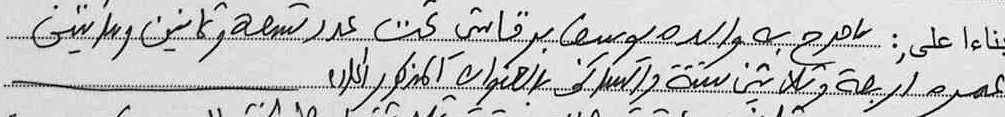 بناءا على: ما صرح به والده يوسف برقاش تحت عدد تسعة وثمانين ومائتين
عمره اربعة وثلاثين سنة والساكن بالعنوان المذكور اعلاه